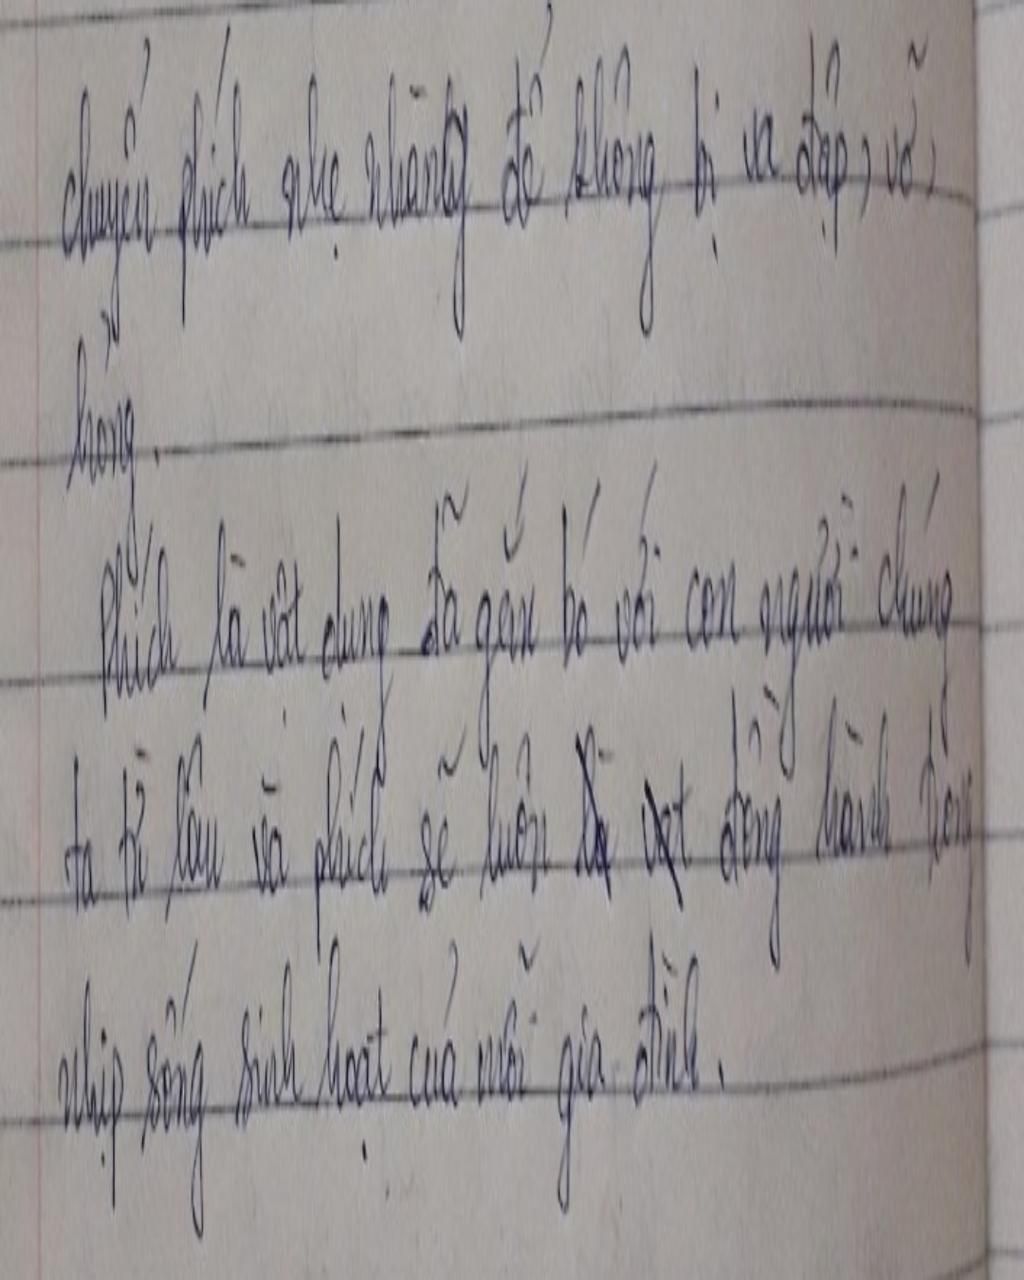 chuyển phích nhẹ nhàng để không bị va đập, vỡ,
hỏng.
Phích là vật dụng đã gắn bó với con người chúng
ta từ lâu và phích sẽ luôn đồng hành trong
nhịp sống sinh hoạt của mỗi gia đình.